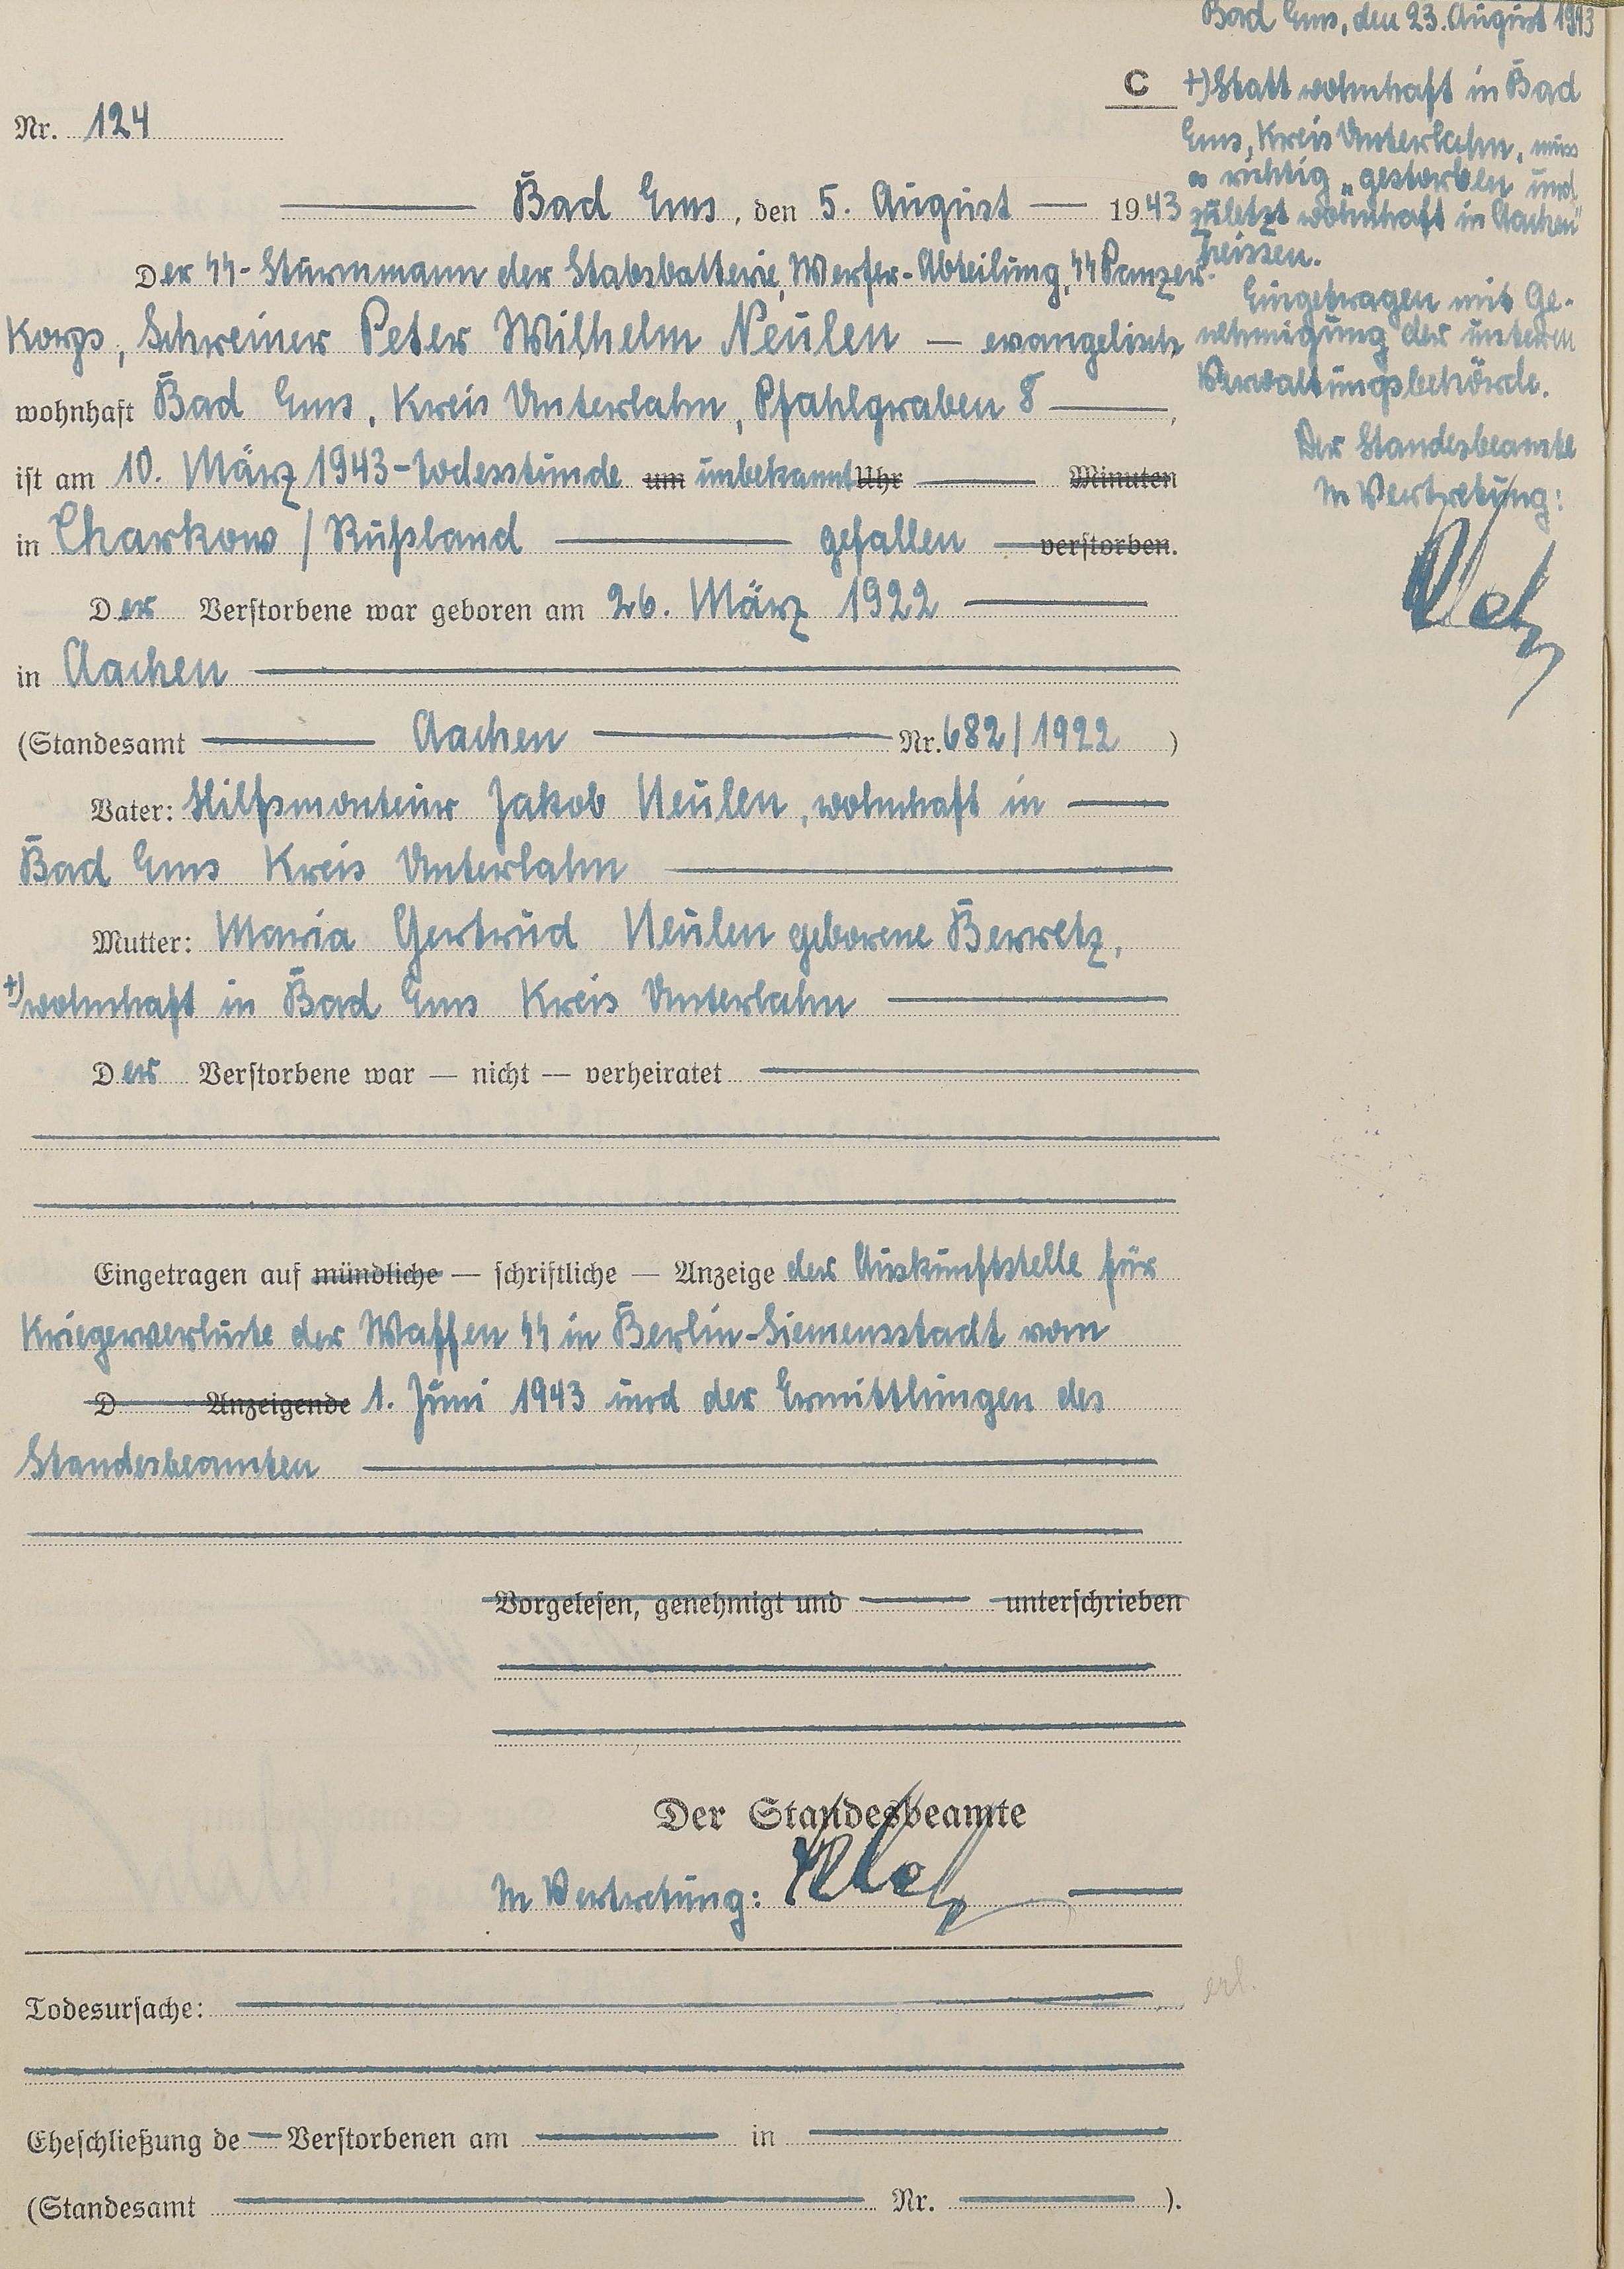 C
Nr. 124
Bad Ems, den 5. August 1943
Der SS-Sturmmann der Stabsbatterie, Werfer-Abteilung, SS Panzer-
Korps, Schreiner Peter Wilhelm Neulen — evangelisch
wohnhaft Bad Ems, Kreis Unterlahn, Pfahlgraben 8 ,
ist am 10. März 1943 - Todesstunde um unbekannt Uhr Minuten
in Charkow / Rußland gefallen verstorben.
Der Verstorbene war geboren am 26. März 1922
in Aachen
(Standesamt Aachen Nr. 682/1922 )
Vater: Hilfsmonteur Jakob Neulen, wohnhaft in
Bad Ems Kreis Unterlahn
Mutter: Maria Gertrud Neulen geborene Berretz,
+) wohnhaft in Bad Ems Kreis Unterlahn
Der Verstorbene war — nicht — verheiratet
Eingetragen auf mündliche — schriftliche — Anzeige der Auskunftstelle für
Kriegerverluste der Waffen SS in Berlin-Siemensstadt vom
D Anzeigende 1. Juni 1943 und der Ermittlungen des
Standesbeamten
Vorgelesen, genehmigt und unterschrieben
Der Standesbeamte
In Vertretung:
Todesursache:
Eheschließung de Verstorbenen am in
(Standesamt Nr. ).
Bad Ems, den 23. August 1943
+) Statt wohnhaft in Bad
Ems, Kreis Unterlahn, muss
es richtig „gestorben und
zuletzt wohnhaft in Aachen"
heissen.
Eingetragen mit Ge-
nehmigung der unteren
Verwaltungsbehörde.
Der Standesbeamte
In Vertretung:
erl.